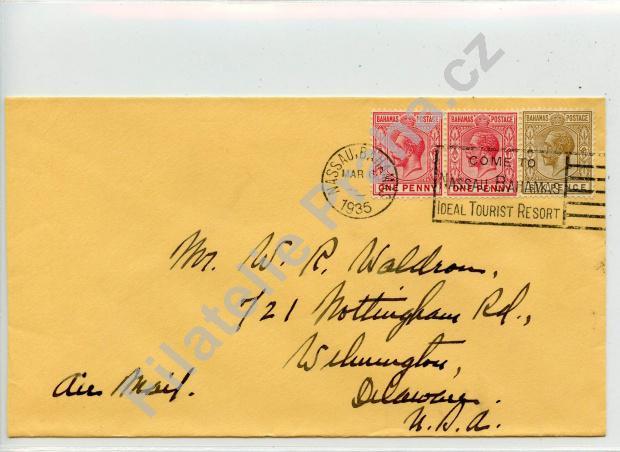 BAHAMAS POSTAGE BAHAMAS POSTAGE BAHAMAS POSTAGE
ONE PENNY ONE PENNY SIX PENCE
NASSAU, BAHAMAS
MAR 6
1935
COME TO
NASSAU BAHAMAS
IDEAL TOURIST RESORT
Mr. W. R. Waldron,
721 Nottingham Rd.,
Wilmington,
Delaware.
U.S.A.
Air Mail.
Filatelie Praha.cz